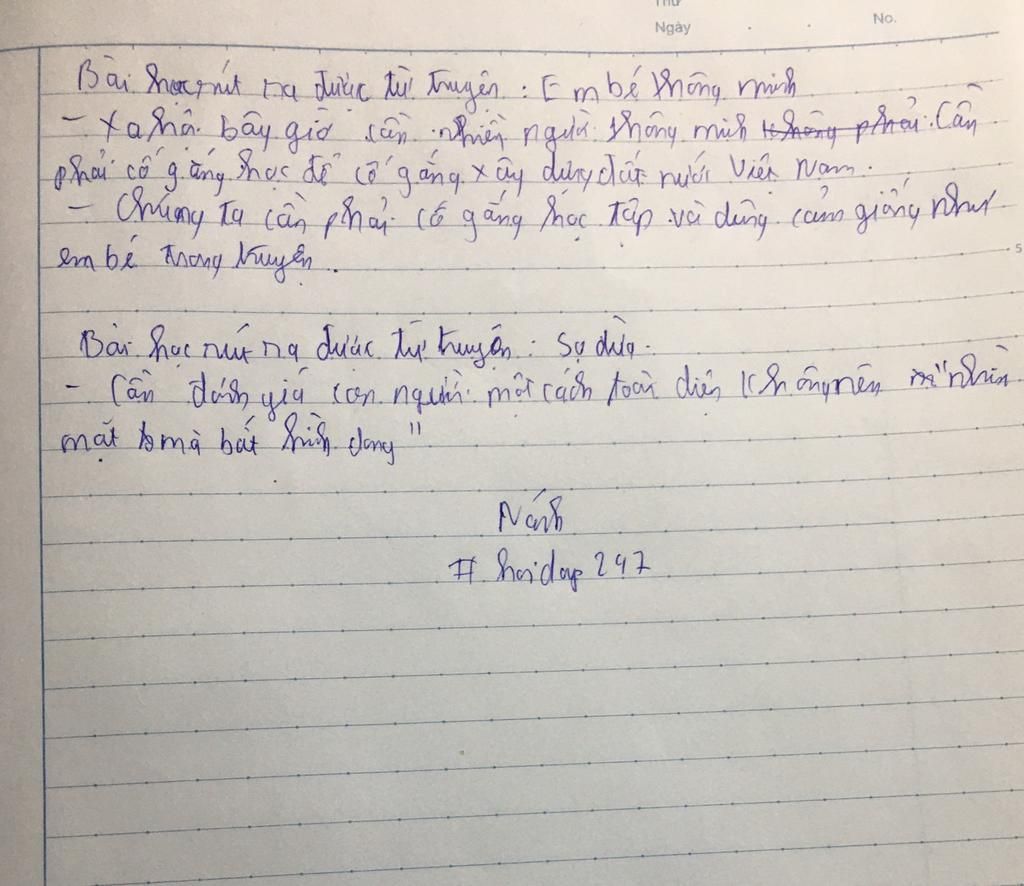 Thứ
Ngày
No.
Bài học rút ra được từ truyện : Em bé thông minh
- Xã hội bây giờ cần nhiều người thông minh không phải. Cần
phải cố gắng học để cố gắng xây dựng đất nước Việt Nam.
- Chúng ta cần phải cố gắng học tập và dũng cảm giống như
em bé trong truyện..
5
Bài học rút ra được từ truyện : Sọ dừa.
- Cần đánh giá con người một cách toàn diện không nên "nhìn
mặt mà bắt hình dong"
# hoidap 247